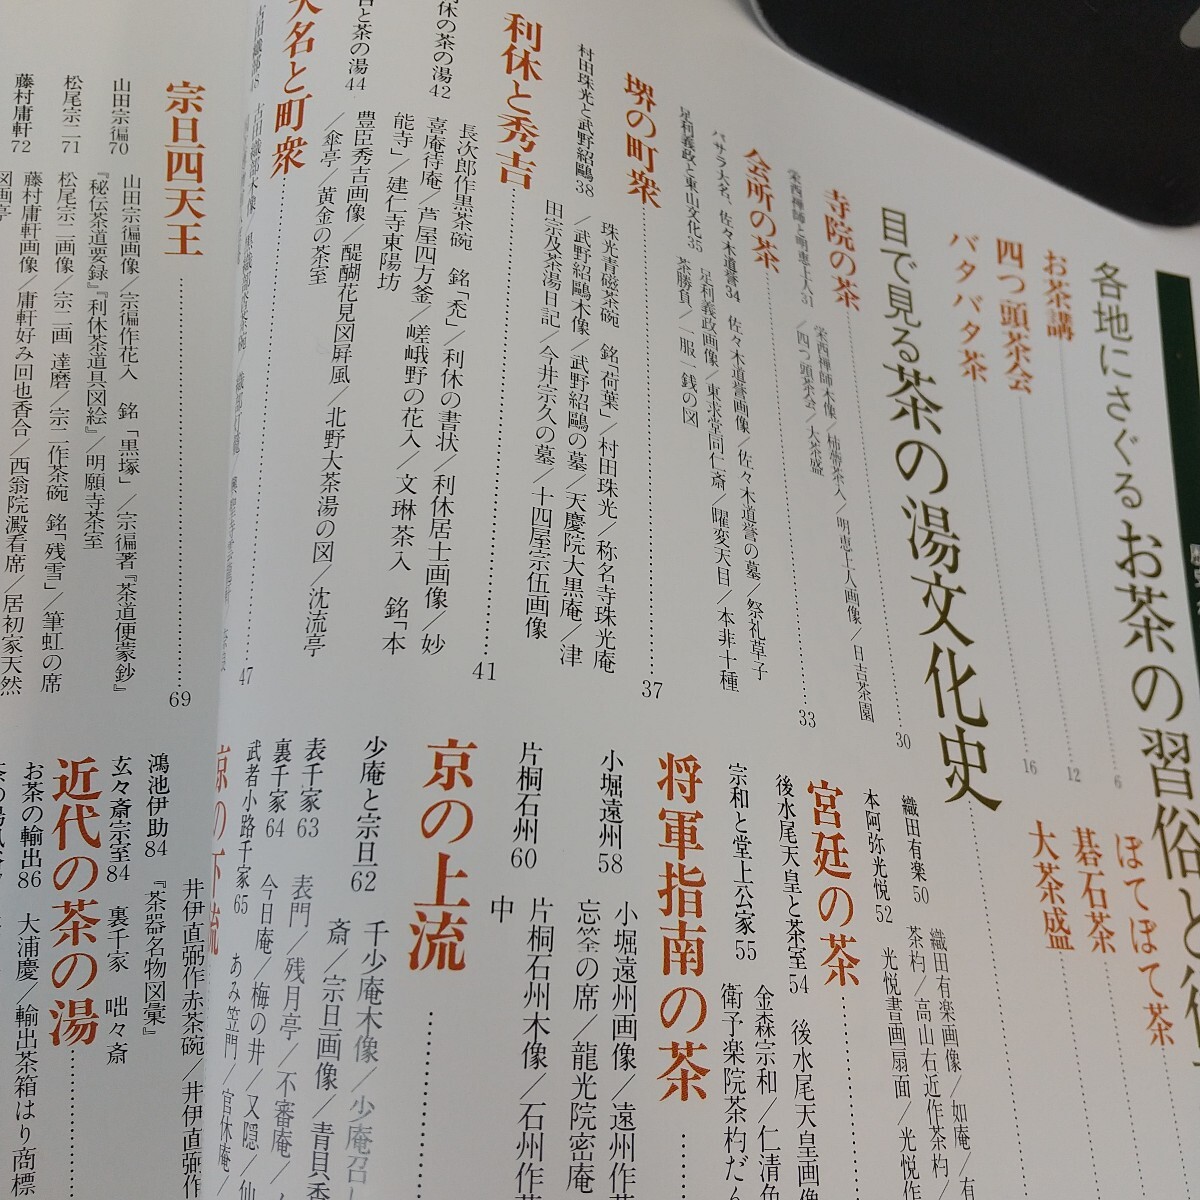 各地にさぐるお茶の習俗と
お茶講
6
四つ頭茶会
12
バタバタ茶
16
ぼてぼて茶
碁石茶
大茶盛
目で見る茶の湯文化史
寺院の茶
30
栄西禅師と明恵上人31
栄西禅師木像／柿蔕茶入／明恵上人画像／日吉茶園
／四つ頭茶会／大茶盛
会所の茶
33
バサラ大名、佐々木道誉34
佐々木道誉画像／佐々木道誉の墓／祭礼草子
足利義政と東山文化35
足利義政画像／東求堂同仁斎／曜変天目／本非十種
茶勝負／一服一銭の図
堺の町衆
37
村田珠光と武野紹鷗38
珠光青磁茶碗 銘「荷葉」／村田珠光／称名寺珠光庵
／武野紹鷗木像／武野紹鷗の墓／天慶院大黒庵／津
田宗及茶湯日記／今井宗久の墓／十四屋宗伍画像
利休と秀吉
41
休の茶の湯42
長次郎作黒茶碗 銘「禿」／利休の書状／利休居士画像／妙
喜庵待庵／芦屋四方釜／嵯峨野の花入／文琳茶入 銘「本
能寺」／建仁寺東陽坊
と茶の湯44
豊臣秀吉画像／醍醐花見図屛風／北野大茶湯の図／沈流亭
／傘亭／黄金の茶室
大名と町衆
47
織田有楽50
織田有楽画像／如庵／有
茶杓／高山右近作茶杓／
本阿弥光悦52
光悦書画扇面／光悦作
宮廷の茶
後水尾天皇と茶室54
後水尾天皇画像
宗和と堂上公家55
金森宗和／仁清色
衛予楽院茶杓だん
将軍指南の茶
小堀遠州58
小堀遠州画像／遠州作茶
忘筌の席／龍光院密庵
片桐石州60
片桐石州木像／石州作茶
中
京の上流
少庵と宗旦62
千少庵木像／少庵召し
斎／宗旦画像／青貝香
表千家63
表門／残月亭／不審庵／
裏千家64
今日庵／梅の井／又隠／仙
武者小路千家65
あみ笠門／官休庵／
京の下流
宗旦四天王
69
山田宗徧70
山田宗徧画像／宗徧作花入 銘「黒塚」／宗徧著『茶道便蒙鈔』
『秘伝茶道要録』『利休茶道具図絵』／明願寺茶室
松尾宗二71
松尾宗二画像／宗二画 達磨／宗二作茶碗 銘「残雪」／筆虹の席
藤村庸軒72
藤村庸軒画像／庸軒好み回也香合／西翁院澱看席／居初家天然
図画亭
井伊直弼作赤茶碗／井伊直弼作
鴻池伊助84
『茶器名物図彙』
玄々斎宗室84
裏千家 咄々斎
近代の茶の湯
お茶の輸出86
大浦慶／輸出茶箱はり商標